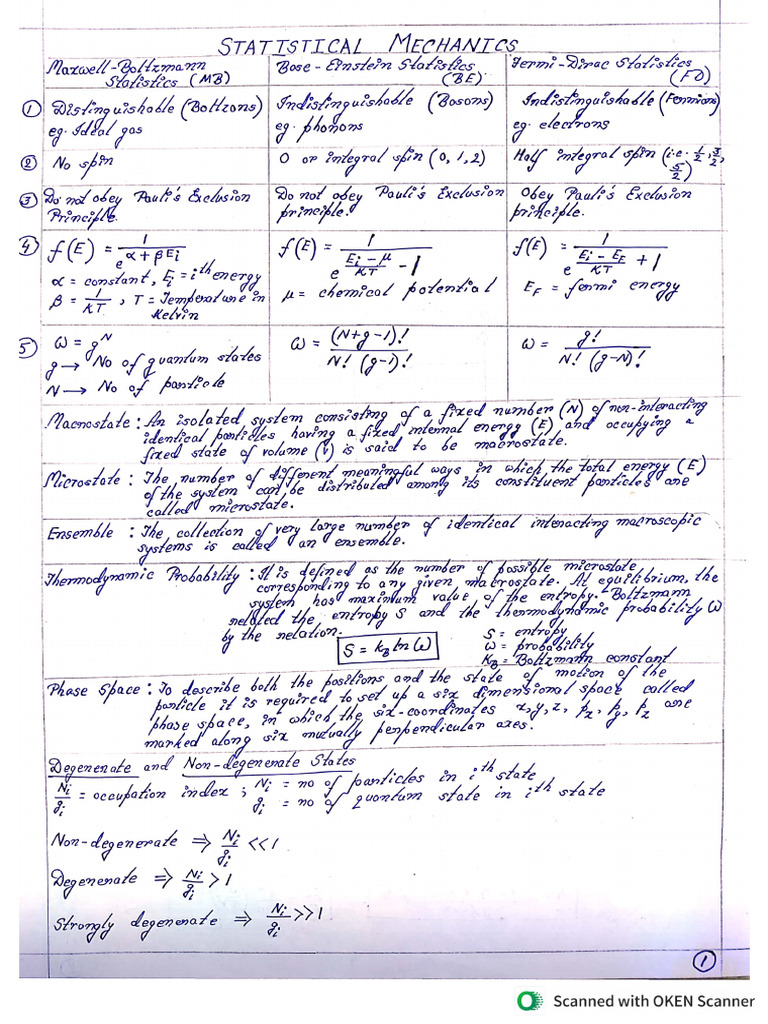 STATISTICAL MECHANICS
Maxwell-Boltzmann
Statistics (MB)
Bose-Einstein Statistics
(BE)
Fermi-Dirac Statistics
(FD)
① Distinguishable (Boltzons)
eg. Ideal gas
Indistinguishable (Bosons)
eg. phonons
Indistinguishable (Fermions)
eg. electrons
② No spin
0 or integral spin (0, 1, 2)
Half integral spin (i.e. 1/2, 3/2,
5/2)
③ Do not obey Pauli's Exclusion
Principle.
Do not obey Pauli's Exclusion
principle.
Obey Pauli's Exclusion
principle.
④ f(E) = 1/e^(α+βEi)
α = constant, Ei = ith energy
β = 1/KT, T = Temperature in
Kelvin
f(E) = 1/(e^((Ei-μ)/KT) - 1)
μ = chemical potential
f(E) = 1/(e^((Ei-EF)/KT) + 1)
EF = fermi energy
⑤ ω = g^N
g → No of quantum states
N → No of particle
ω = (N+g-1)!/(N! (g-1)!)
ω = g!/(N! (g-N)!)
Macrostate : An isolated system consisting of a fixed number (N) of non-interacting
identical particles having a fixed internal energy (E) and occupying a
fixed state of volume (V) is said to be macrostate.
Microstate : The number of different meaningful ways in which the total energy (E)
of the system can be distributed among its constituent particles are
called microstate.
Ensemble : The collection of very large number of identical interacting macroscopic
systems is called an ensemble.
Thermodynamic Probability : It is defined as the number of possible microstate
corresponding to any given macrostate. At equilibrium, the
system has maximum value of the entropy. Boltzmann
related the entropy S and the thermodynamic probability ω
by the relation.
S = kB ln(ω)
S = entropy
ω = probability
KB = Boltzmann constant
Phase Space : To describe both the positions and the state of motion of the
particle it is required to set up a six dimensional space called
phase space, in which the six-coordinates x, y, z, px, py, pz are
marked along six mutually perpendicular axes.
Degenerate and Non-degenerate States
Ni/gi = occupation index ; Ni = no of particles in ith state
gi = no of quantum state in ith state
Non-degenerate ⇒ Ni/gi << 1
Degenerate ⇒ Ni/gi > 1
Strongly degenerate ⇒ Ni/gi >> 1
①
Scanned with OKEN Scanner